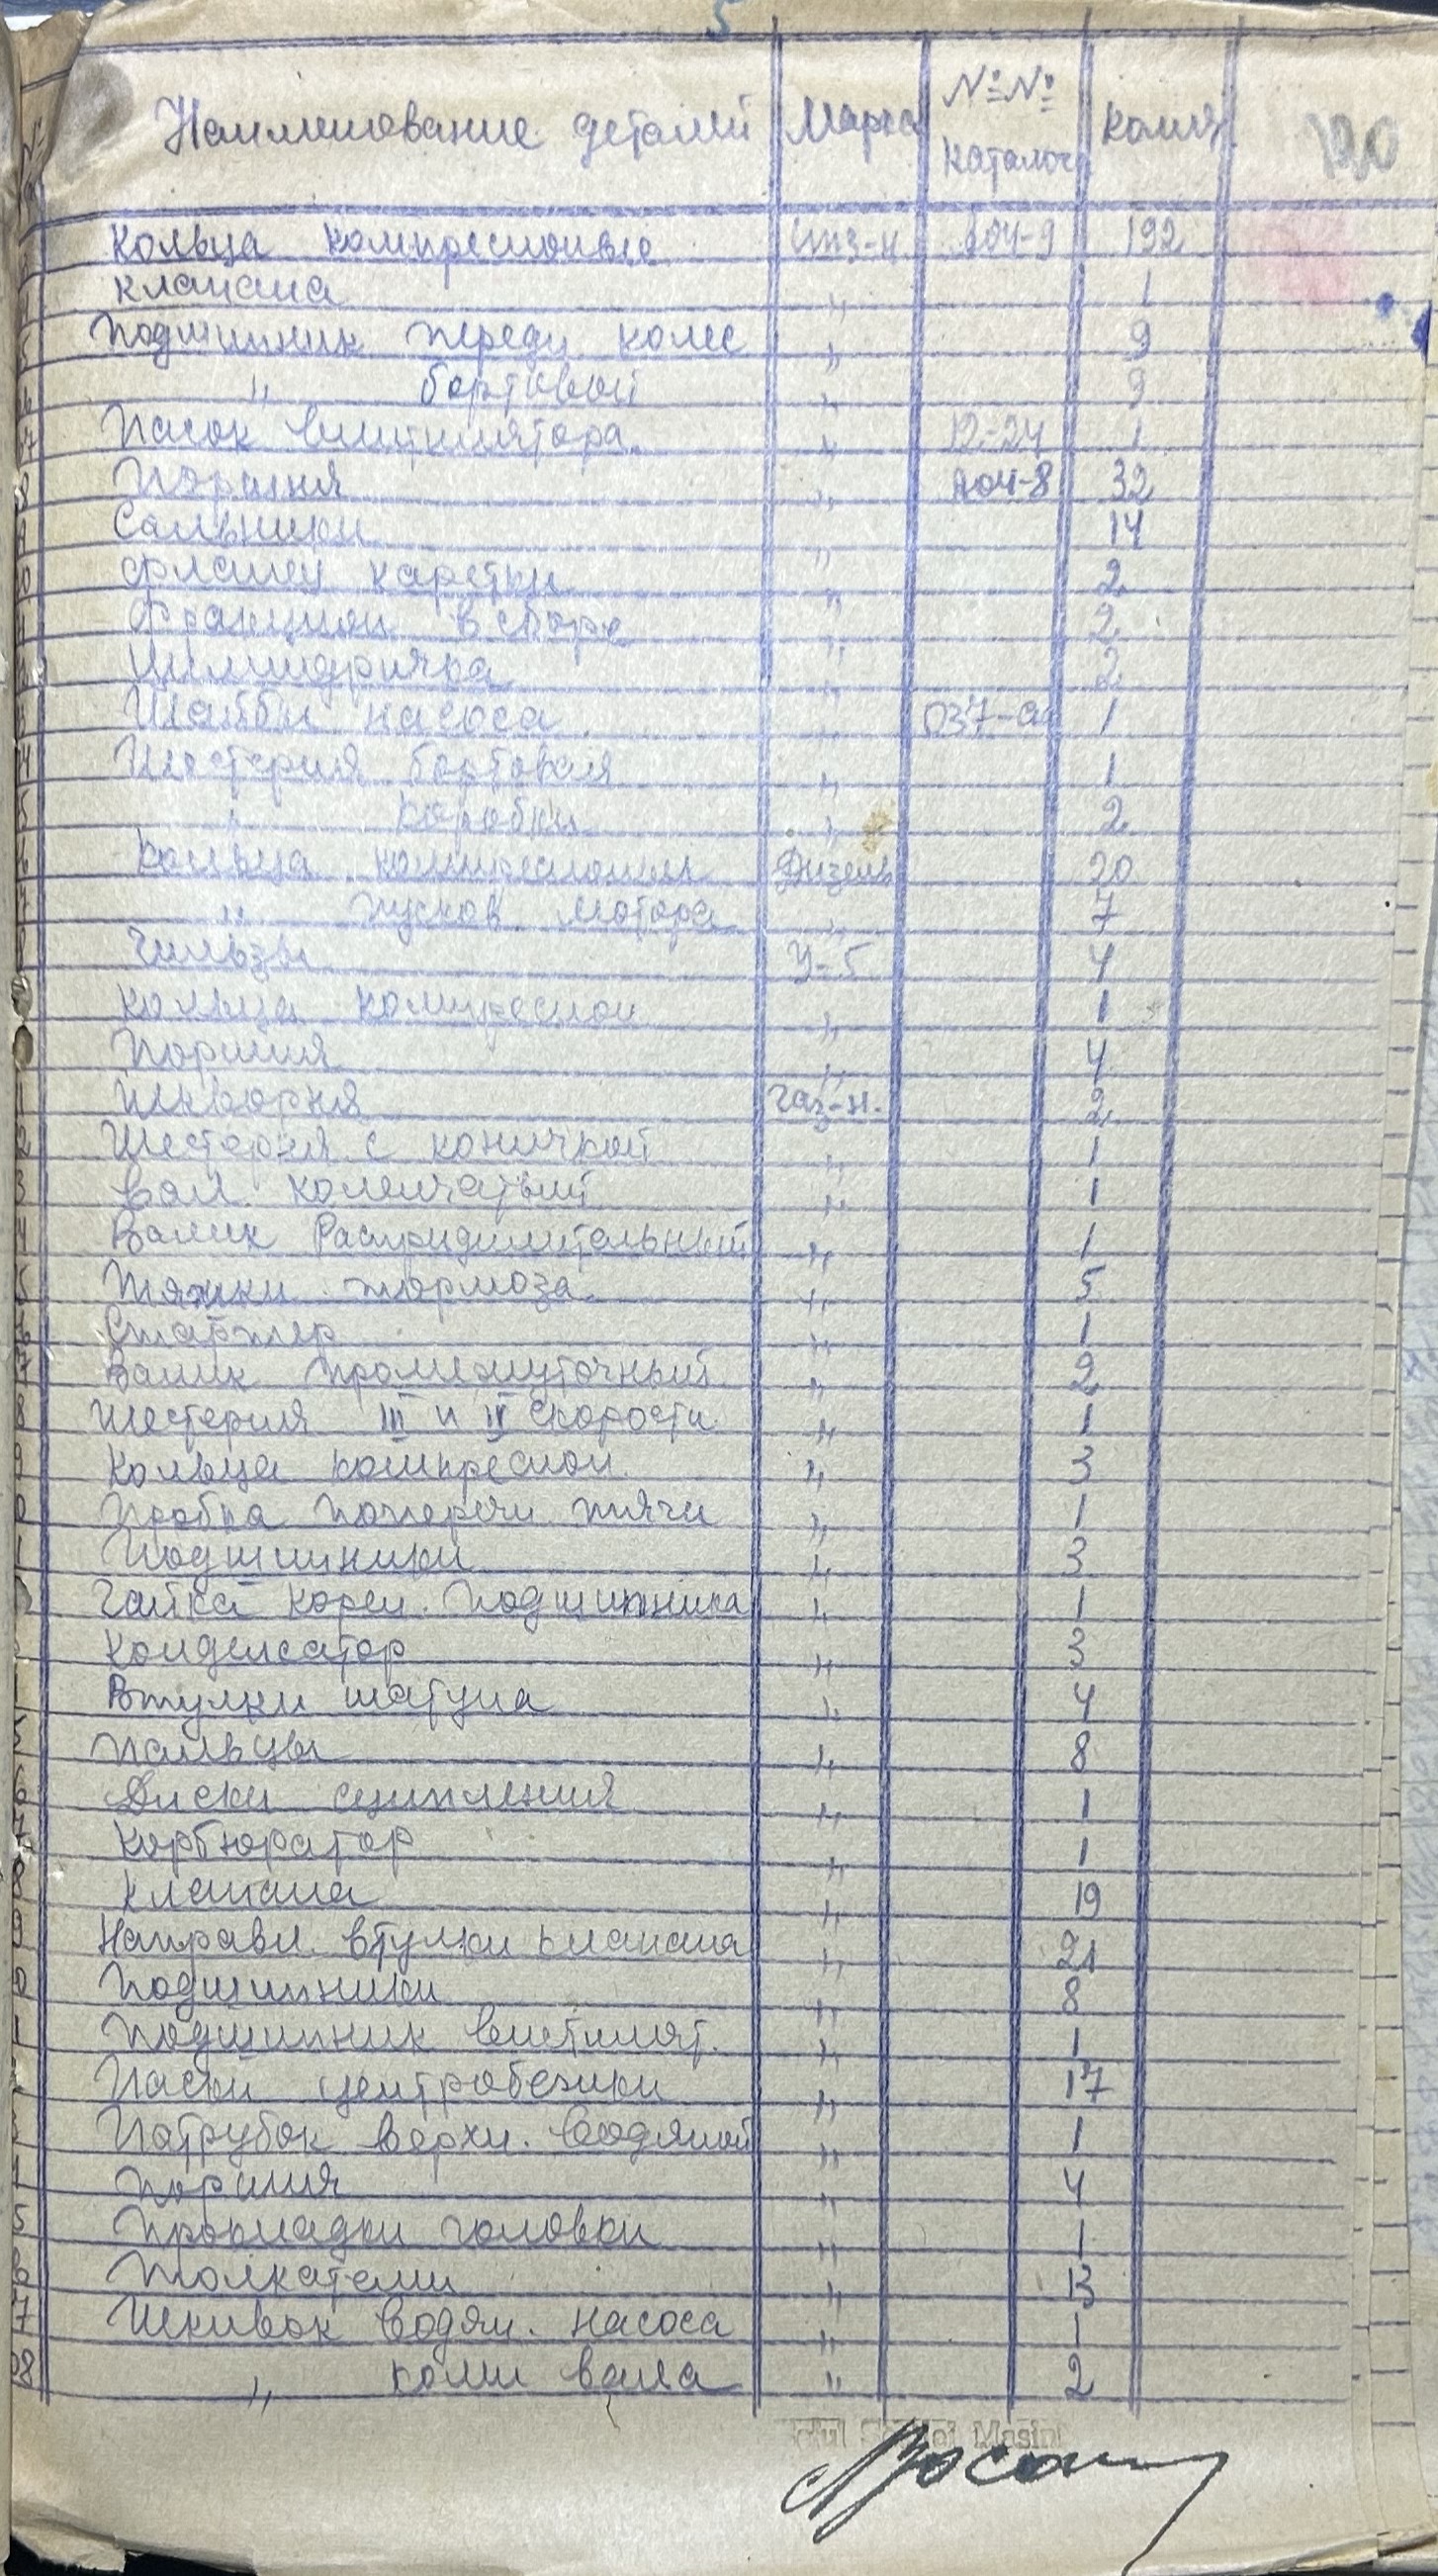 5
Наименование деталей Марка №№ каталог колич
190
Кольца компресионные 192
клапана „ 1
Подшипник передн колес „ 9
„ бортовой „ 9
Пасок вентилятора „ 12-24 1
Поршня „ А04-8 32
Сальники „ 14
фланец каретки „ 2
Фракцион в сборе „ 2
Цилиндричка „ 2
Шайбы насоса „ 1
Шестерня бортовая „ 1
„ коробки „ 2
Кольца компресионные Дизель 20
„ пусков. мотора „ 7
Гильзы У-5 4
Кольца компресион „ 1
Поршня „ 4
Шкворня Газ-н. 2
Шестерня с коничкой „ 1
Вал коленчатый „ 1
Валик Распридилительный „ 1
Тяжки тормоза „ 5
Стартер „ 1
Валик промежуточный „ 2
Шестерня III и IV скорости „ 1
Кольца компресион. „ 3
Пробка попереч. тяги „ 1
Подшипники „ 3
Гайка корен. подшипника „ 1
Конденсатор „ 3
Втулки шатуна „ 4
Пальцы „ 8
Диски сципления „ 1
Корбюратор „ 1
Клапана „ 19
Направл. втулки клапана „ 21
Подшипники „ 8
Подшипник вентилят. „ 1
Паски центробежки „ 17
Патрубок верхн. водяной „ 1
Поршня „ 4
Прокладки головки „ 1
Толкатели „ 13
Шкивок водян. насоса „ 1
„ колен вала „ 2